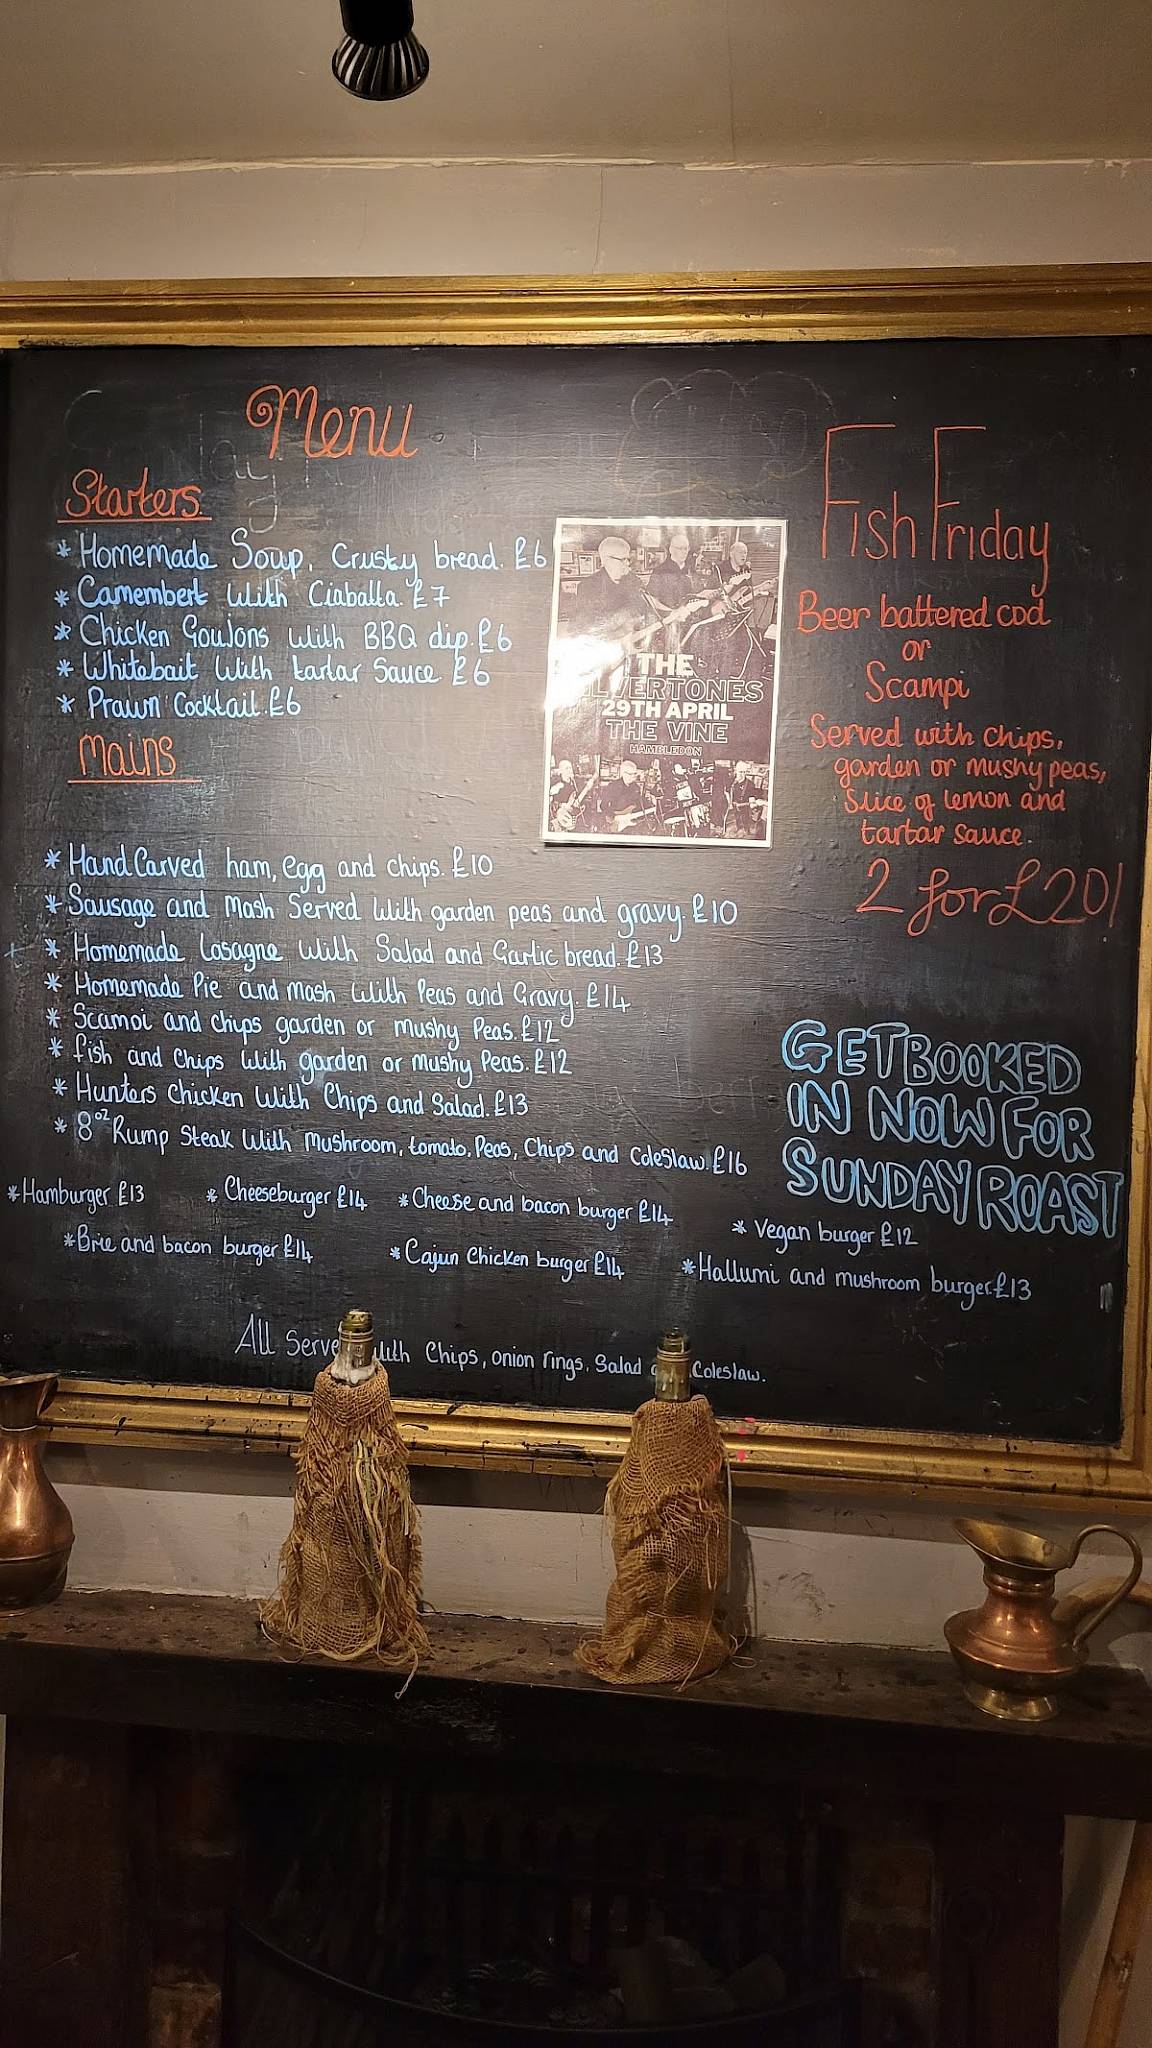 Menu
Starters
* Homemade Soup, Crusty bread. £6
* Camembert with Ciabatta. £7
* Chicken Goujons with BBQ dip. £6
* Whitebait with tartar Sauce £6
* Prawn Cocktail. £6
Mains
* Hand Carved ham, egg and chips. £10
* Sausage and mash Served with garden peas and gravy. £10
* Homemade Lasagne with Salad and Garlic bread. £13
* Homemade Pie and mash with Peas and Gravy. £14
* Scamoi and chips garden or mushy Peas. £12
* fish and chips with garden or mushy Peas. £12
* Hunters chicken with Chips and Salad. £13
* 8oz Rump Steak with mushroom, tomato, Peas, Chips and Coleslaw. £16
* Hamburger £13 * Cheeseburger £14 * Cheese and bacon burger £14 * Vegan burger £12
* Brie and bacon burger £14 * Cajun Chicken burger £14 * Hallumi and mushroom burger. £13
All Serve with Chips, onion rings, Salad Coleslaw.
THE
LVERTONES
29TH APRIL
THE VINE
HAMBLEDON
Fish Friday
Beer battered cod
or
Scampi
Served with chips,
garden or mushy peas,
slice of lemon and
tartar sauce.
2 for £20!
GET BOOKED
IN NOW FOR
SUNDAY ROAST